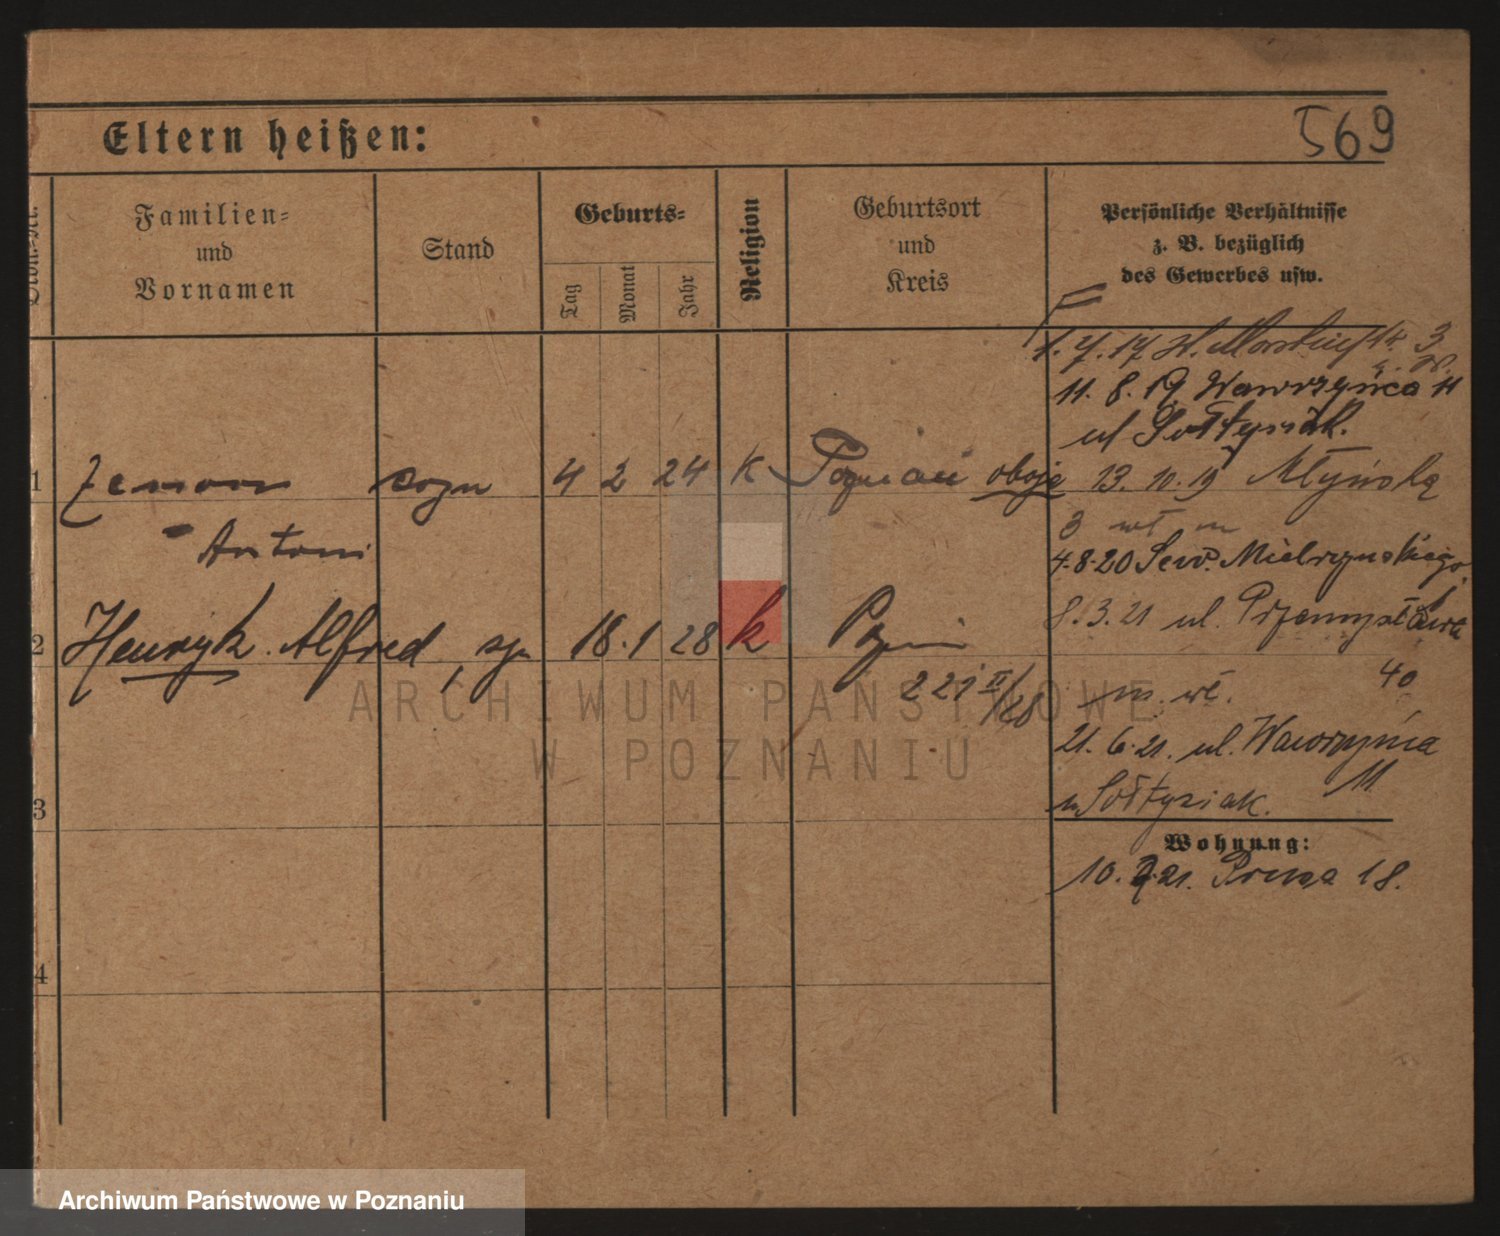 Eltern heißen:
569
Ordn.-Nr.
Familien-
und
Vornamen
Stand
Geburts-
Tag
Monat
Jahr
Religion
Geburtsort
und
Kreis
Persönliche Verhältnisse
z. B. bezüglich
des Gewerbes usw.
1. 7. 17 3
11. 8. 19 Wawrzyńca 11
ul Sołtysiak.
1 Zenon syn 4 2 24 K Poznań oboje
13. 10. 19 Młyńską
Antoni
3 wł m
4.8.20 Sew. Mielżyńskiego
2 Henryk. Alfred, syn 18. 1 28 k Pozn
8. 3. 21 ul. Przemysławа
221 II/28
m. wł. 40
21. 6. 21. ul. Wawrzyńca
11
3
u Sołtysiak.
Wohnung:
10. 21. Prusa 18.
4
ARCHIWUM PAŃSTWOWE
W POZNANIU
Archiwum Państwowe w Poznaniu